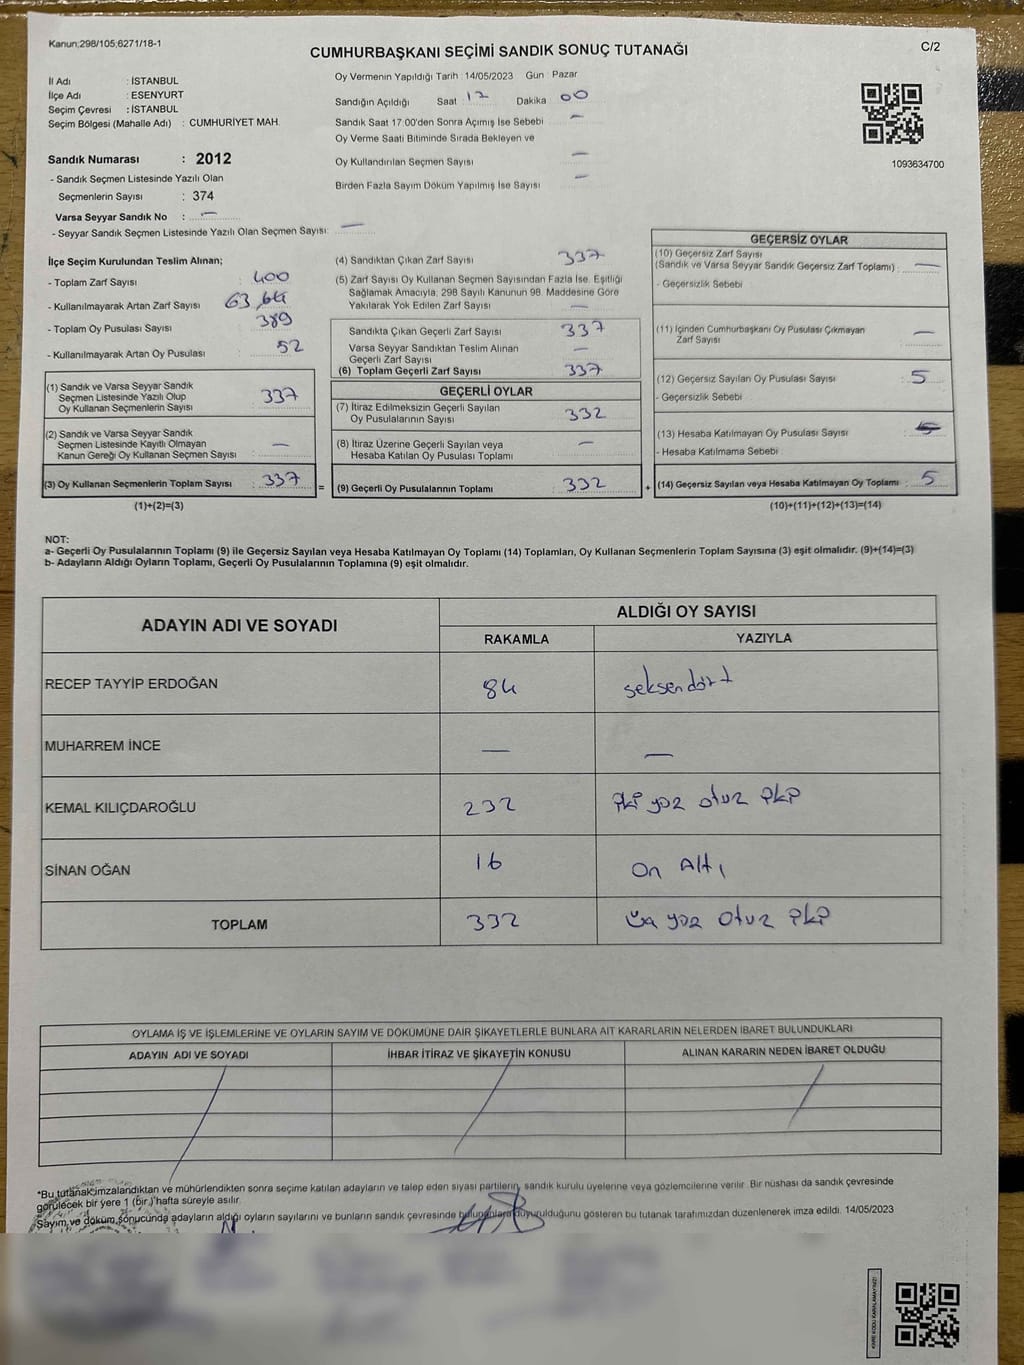 Kanun;298/105;6271/18-1
C/2
CUMHURBAŞKANI SEÇİMİ SANDIK SONUÇ TUTANAĞI
İl Adı : İSTANBUL
İlçe Adı : ESENYURT
Seçim Çevresi : İSTANBUL
Seçim Bölgesi (Mahalle Adı) : CUMHURİYET MAH.
Sandık Numarası : 2012
- Sandık Seçmen Listesinde Yazılı Olan
Seçmenlerin Sayısı : 374
Varsa Seyyar Sandık No : —
- Seyyar Sandık Seçmen Listesinde Yazılı Olan Seçmen Sayısı: —
Oy Vermenin Yapıldığı Tarih : 14/05/2023 Gün : Pazar
Sandığın Açıldığı Saat : 17 Dakika : 00
Sandık Saat 17:00'den Sonra Açımış İse Sebebi —
Oy Verme Saati Bitiminde Sırada Bekleyen ve
Oy Kullandırılan Seçmen Sayısı —
Birden Fazla Sayım Döküm Yapılmış İse Sayısı —
1093634700
İlçe Seçim Kurulundan Teslim Alınan;
- Toplam Zarf Sayısı : 400
- Kullanılmayarak Artan Zarf Sayısı : 63
- Toplam Oy Pusulası Sayısı : 389
- Kullanılmayarak Artan Oy Pusulası : 52
(1) Sandık ve Varsa Seyyar Sandık
Seçmen Listesinde Yazılı Olup
Oy Kullanan Seçmenlerin Sayısı : 337
(2) Sandık ve Varsa Seyyar Sandık
Seçmen Listesinde Kayıtlı Olmayan
Kanun Gereği Oy Kullanan Seçmen Sayısı : —
(3) Oy Kullanan Seçmenlerin Toplam Sayısı : 337
(1)+(2)=(3)
=
(4) Sandıktan Çıkan Zarf Sayısı 337
(5) Zarf Sayısı Oy Kullanan Seçmen Sayısından Fazla İse, Eşitliği
Sağlamak Amacıyla, 298 Sayılı Kanunun 98. Maddesine Göre
Yakılarak Yok Edilen Zarf Sayısı —
Sandıkta Çıkan Geçerli Zarf Sayısı 337
Varsa Seyyar Sandıktan Teslim Alınan
Geçerli Zarf Sayısı —
(6) Toplam Geçerli Zarf Sayısı 337
GEÇERLİ OYLAR
(7) İtiraz Edilmeksizin Geçerli Sayılan
Oy Pusulalarının Sayısı 332
(8) İtiraz Üzerine Geçerli Sayılan veya
Hesaba Katılan Oy Pusulası Toplamı —
(9) Geçerli Oy Pusulalarının Toplamı 332
+
GEÇERSİZ OYLAR
(10) Geçersiz Zarf Sayısı
(Sandık ve Varsa Seyyar Sandık Geçersiz Zarf Toplamı) : —
- Geçersizlik Sebebi
(11) İçinden Cumhurbaşkanı Oy Pusulası Çıkmayan
Zarf Sayısı —
(12) Geçersiz Sayılan Oy Pusulası Sayısı : 5
- Geçersizlik Sebebi
(13) Hesaba Katılmayan Oy Pusulası Sayısı
- Hesaba Katılmama Sebebi
(14) Geçersiz Sayılan veya Hesaba Katılmayan Oy Toplamı : 5
(10)+(11)+(12)+(13)=(14)
NOT:
a- Geçerli Oy Pusulalarının Toplamı (9) ile Geçersiz Sayılan veya Hesaba Katılmayan Oy Toplamı (14) Toplamları, Oy Kullanan Seçmenlerin Toplam Sayısına (3) eşit olmalıdır. (9)+(14)=(3)
b- Adayların Aldığı Oyların Toplamı, Geçerli Oy Pusulalarının Toplamına (9) eşit olmalıdır.
ADAYIN ADI VE SOYADI
ALDIĞI OY SAYISI
RAKAMLA YAZIYLA
RECEP TAYYİP ERDOĞAN 84 seksendört
MUHARREM İNCE — —
KEMAL KILIÇDAROĞLU 232 iki yüz otuz iki
SİNAN OĞAN 16 On Altı
TOPLAM 332 üç yüz otuz iki
OYLAMA İŞ VE İŞLEMLERİNE VE OYLARIN SAYIM VE DÖKÜMÜNE DAİR ŞİKAYETLERLE BUNLARA AİT KARARLARIN NELERDEN İBARET BULUNDUKLARI
ADAYIN ADI VE SOYADI İHBAR İTİRAZ VE ŞİKAYETİN KONUSU ALINAN KARARIN NEDEN İBARET OLDUĞU
*Bu tutanak imzalandıktan ve mühürlendikten sonra seçime katılan adayların ve talep eden siyasi partilerin, sandık kurulu üyelerine veya gözlemcilerine verilir. Bir nüshası da sandık çevresinde
görülecek bir yere 1 (bir ) hafta süreyle asılır.
Sayım ve döküm sonucunda adayların aldığı oyların sayılarını ve bunların sandık çevresinde bulunanlara duyurulduğunu gösteren bu tutanak tarafımızdan düzenlenerek imza edildi. 14/05/2023
KARE KODU KARALAMAYINIZ!